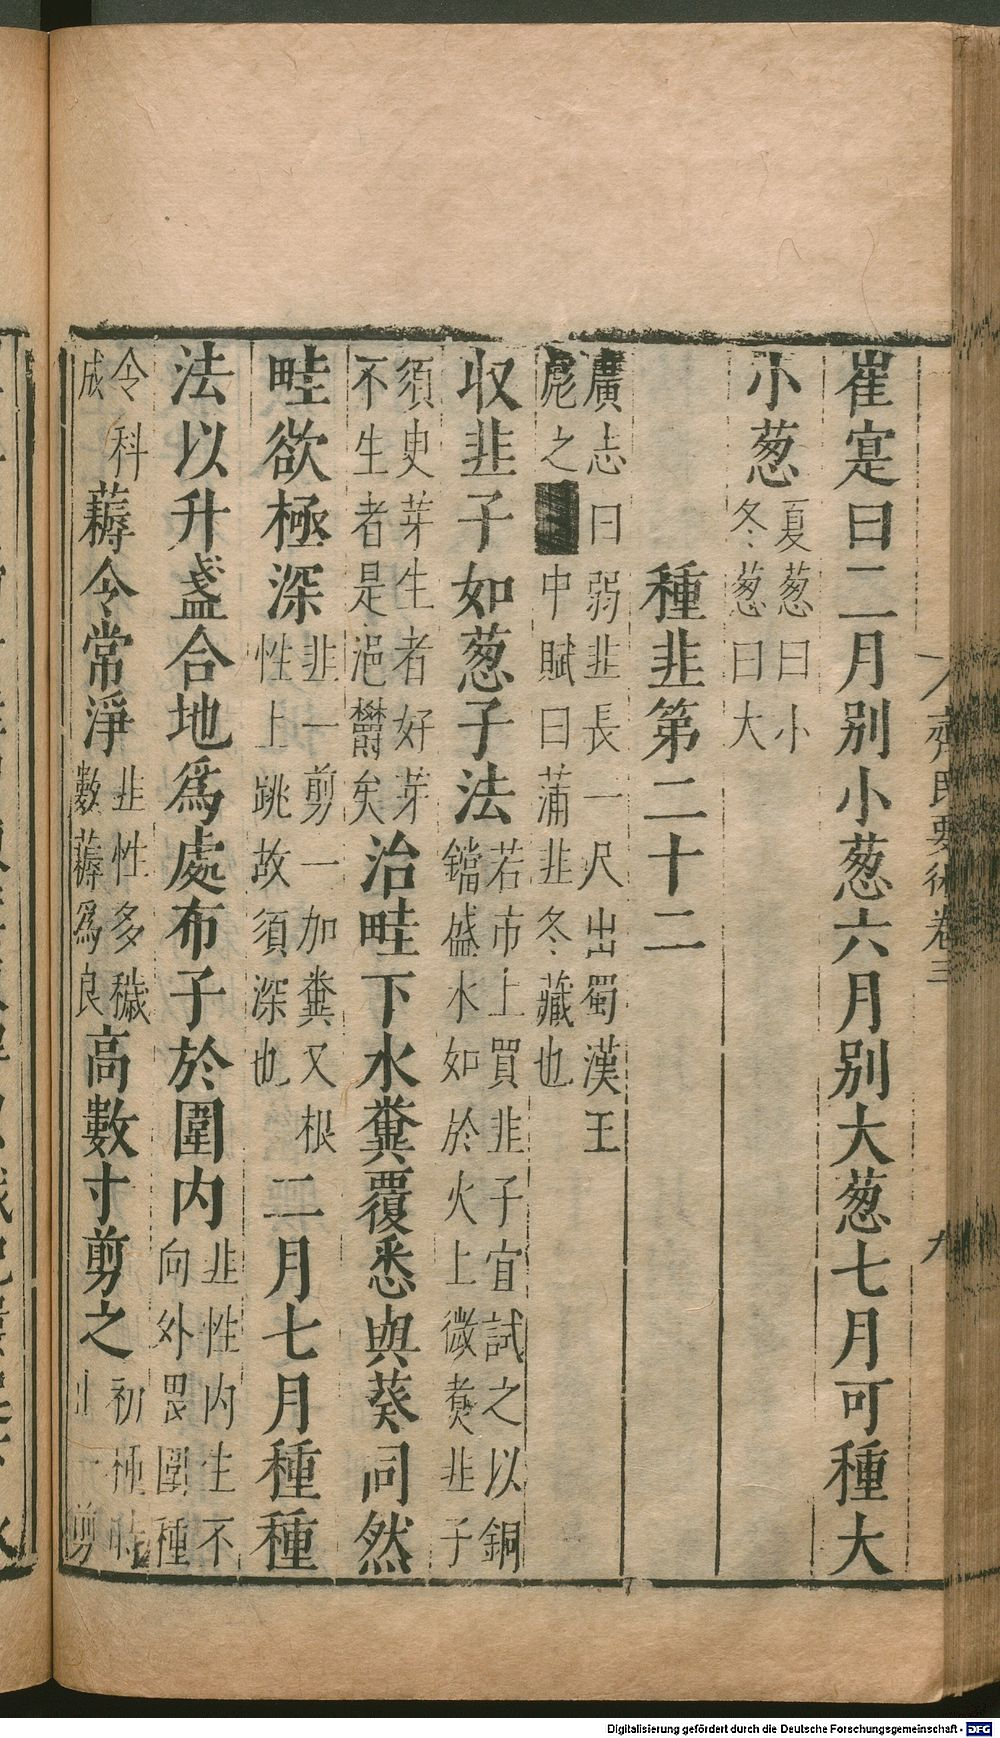 崔寔曰二月别小葱六月别大葱七月可種大
小葱夏葱曰小
冬葱曰大
種韭第二十二
廣志曰弱韭長一尺出蜀漢王
彪之 中賦曰蒲韭冬藏也
收韭子如葱子法若市上買韭子宜試之以銅
鐺盛水如於火上微煑韭子
須㬰芽生者好芽
不生者是浥欝矣治畦下水糞覆悉與葵同然
畦欲極深韭一剪一加糞又根
性上跳故須深也二月七月種種
法以升盞合地爲處布子於圍内韭性内生不
向外畏圍種
令科
成薅令常淨韭性多穢
數薅爲良高數寸剪之初種
止一剪
齊民要術卷三
九
Digitalisierung gefördert durch die Deutsche Forschungsgemeinschaft - DFG